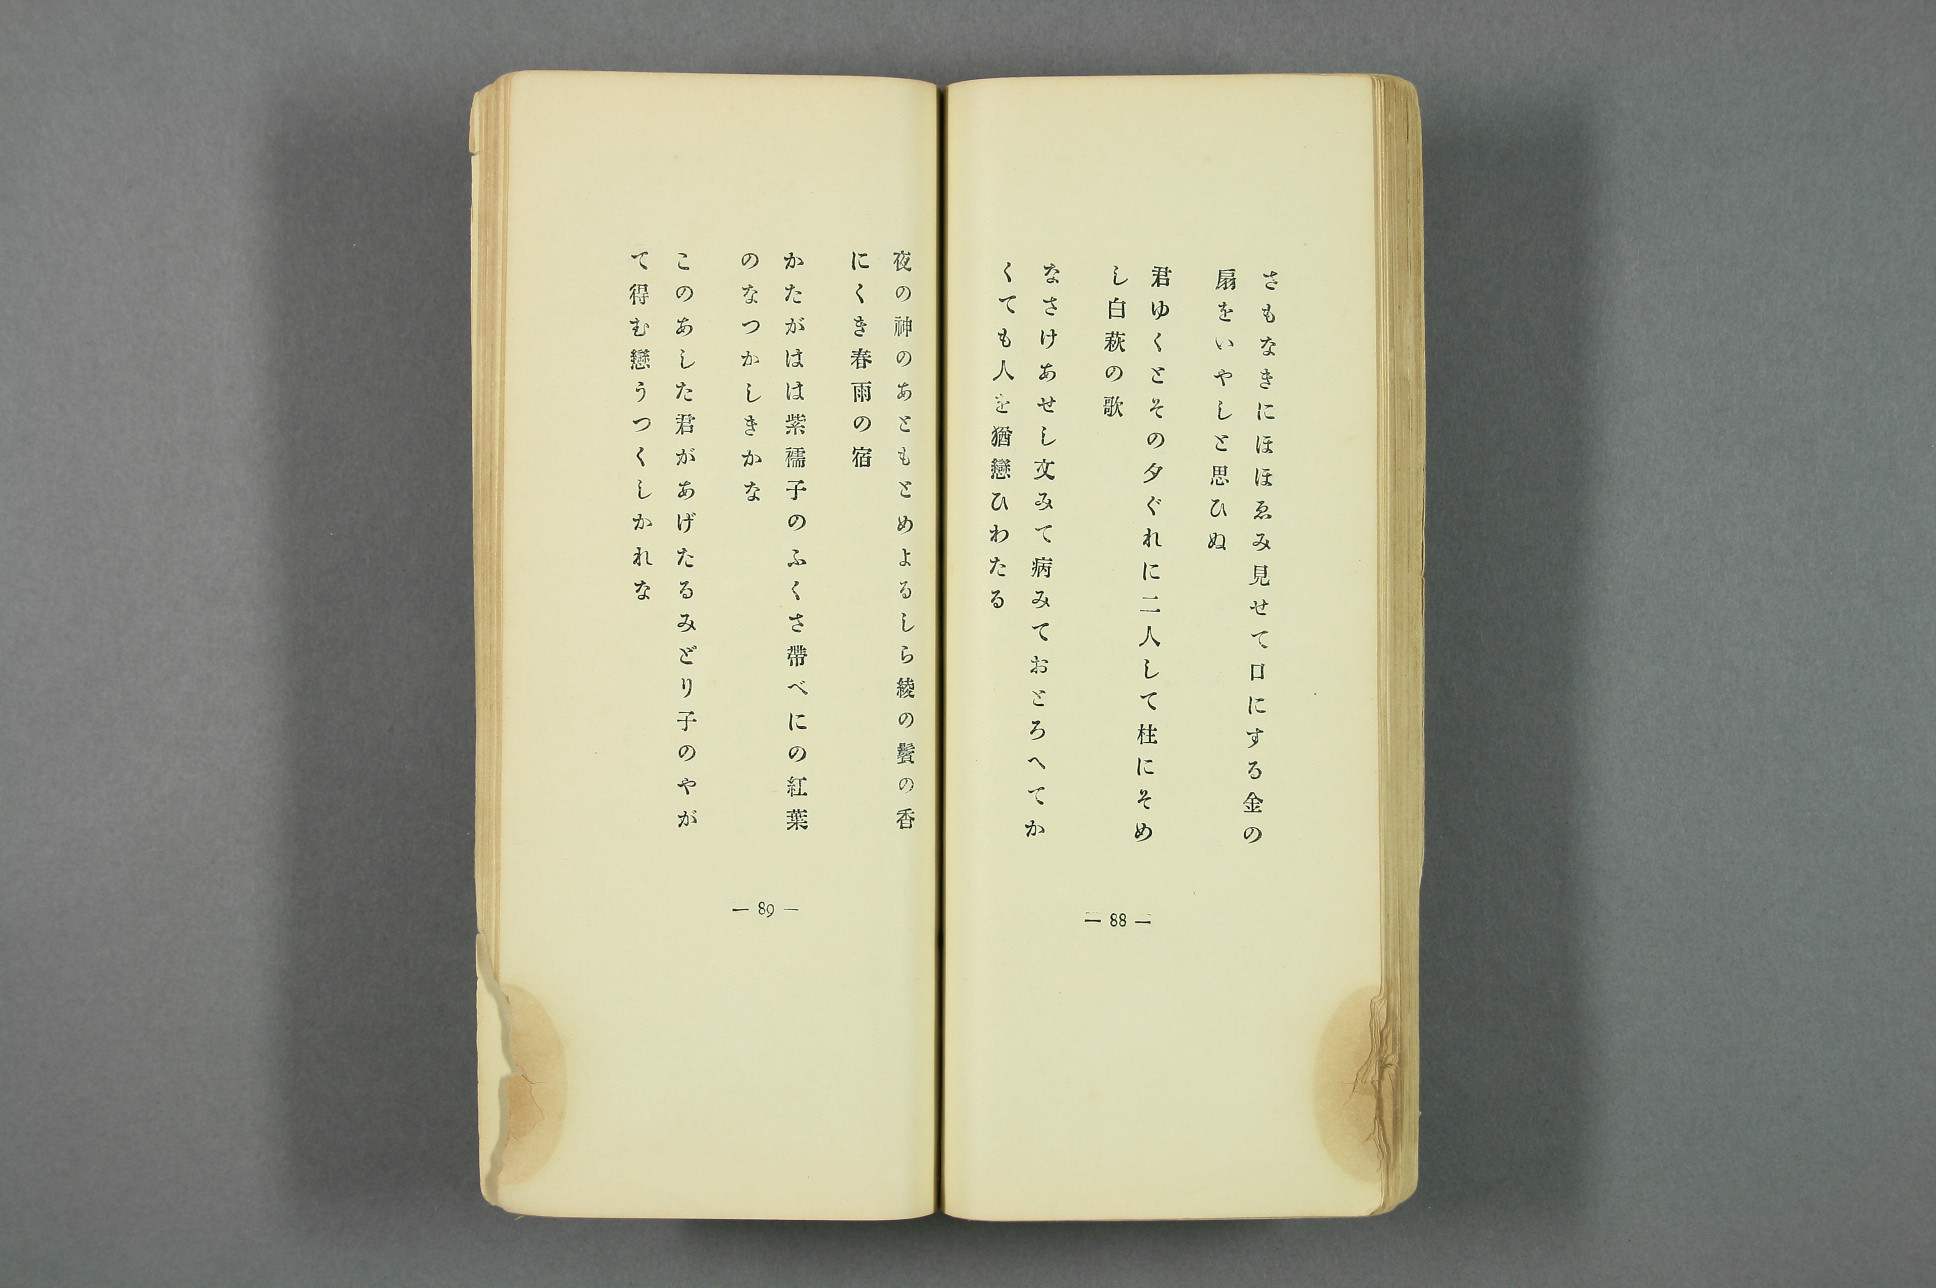 さもなきにほほゑみ見せて口にする金の
扇をいやしと思ひぬ
君ゆくとその夕ぐれに二人して柱にそめ
し白萩の歌
なさけあせし文みて病みておとろへてか
くても人を猶戀ひわたる
— 88 —
夜の神のあともとめよるしら綾の鬢の香
にくき春雨の宿
かたがはは紫襦子のふくさ帶べにの紅葉
のなつかしきかな
このあした君があげたるみどり子のやが
て得む戀うつくしかれな
— 89 —